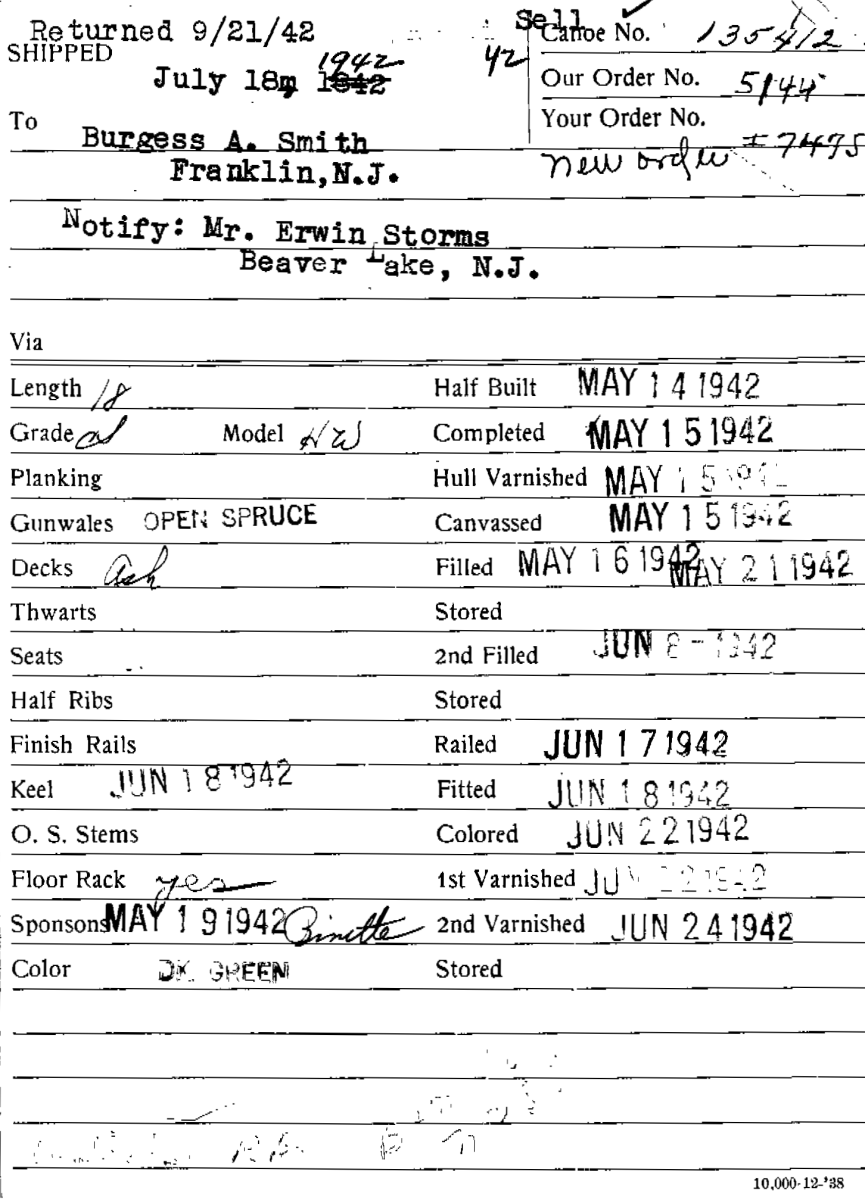 Returned 9/21/42 Sell
SHIPPED Canoe No. 135412
July 18m 1842 1942 42 Our Order No. 5144
To Your Order No.
Burgess A. Smith
Franklin,N.J. new order # 7475
Notify: Mr. Erwin Storms
Beaver Lake, N.J.
Via
Length 18 Half Built MAY 14 1942
Grade Model HW Completed MAY 15 1942
Planking Hull Varnished MAY 15 1942
Gunwales OPEN SPRUCE Canvassed MAY 15 1942
Decks Ash Filled MAY 16 1942 MAY 21 1942
Thwarts Stored
Seats 2nd Filled JUN 8 - 1942
Half Ribs Stored
Finish Rails Railed JUN 17 1942
Keel JUN 18 1942 Fitted JUN 18 1942
O. S. Stems Colored JUN 22 1942
Floor Rack yes 1st Varnished JUN 22 1942
Sponsons MAY 19 1942 Binette 2nd Varnished JUN 24 1942
Color DK. GREEN Stored
10,000-12-'38